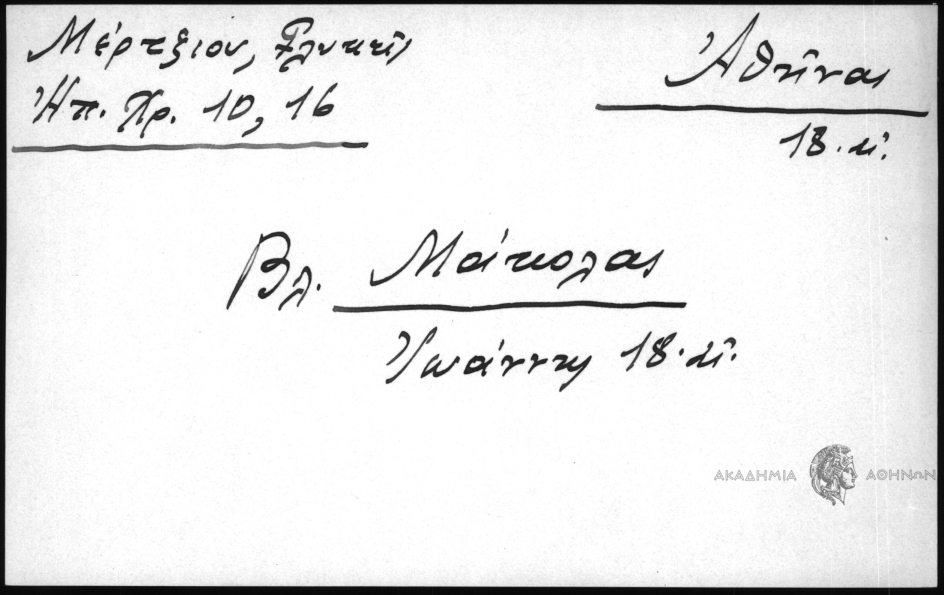 Μέρτζιου, Γλυκεῖς
Ἠπ. Χρ. 10, 16
Ἀθήνας
18. αἰ.
Βλ. Μάκολας
Ἰωάννης 18. αἰ.
ΑΚΑΔΗΜΙΑ ΑΘΗΝΩΝ